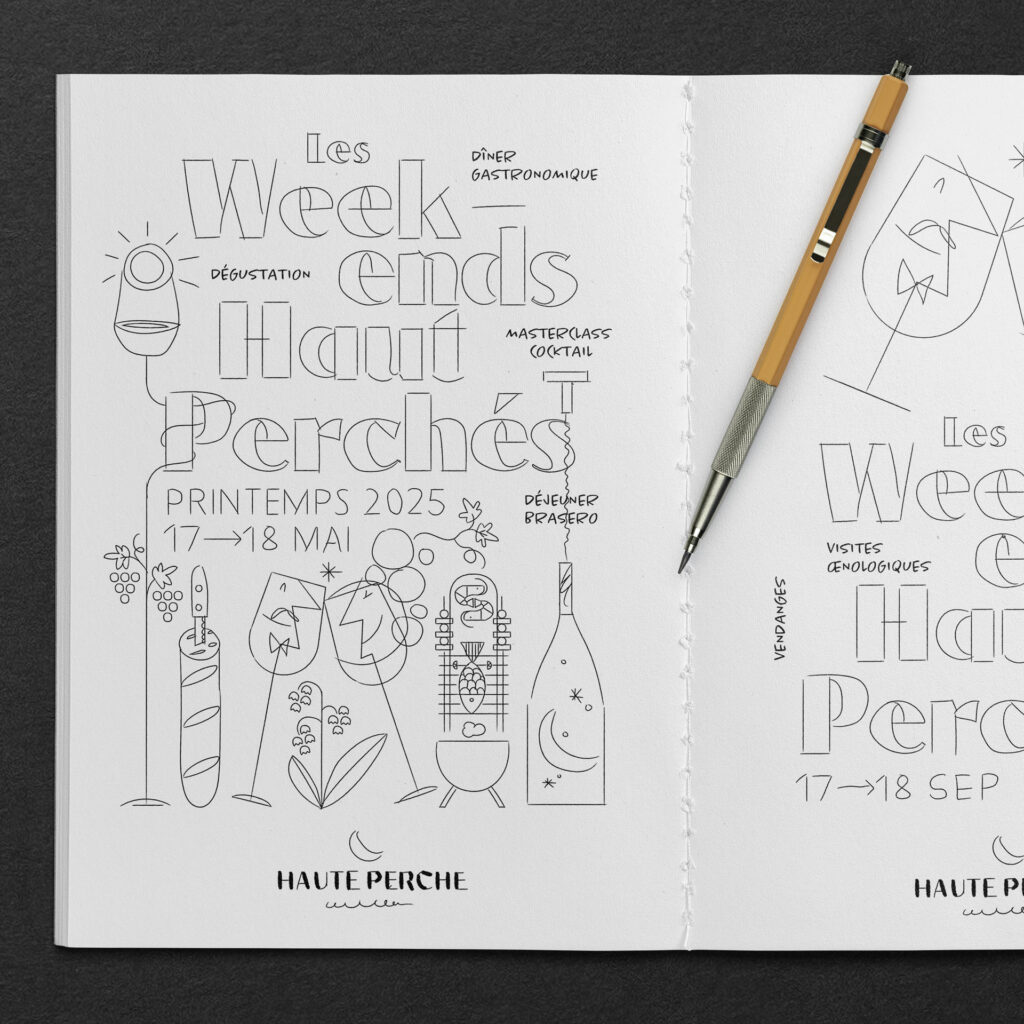 Les
Week–
ends
Haut
Perchés
DÎNER
GASTRONOMIQUE
DÉGUSTATION
MASTERCLASS
COCKTAIL
PRINTEMPS 2025
17→18 MAI
DÉJEUNER
BRASERO
HAUTE PERCHE
Les
VISITES
ŒNOLOGIQUES
VENDANGES
17→18 SEP